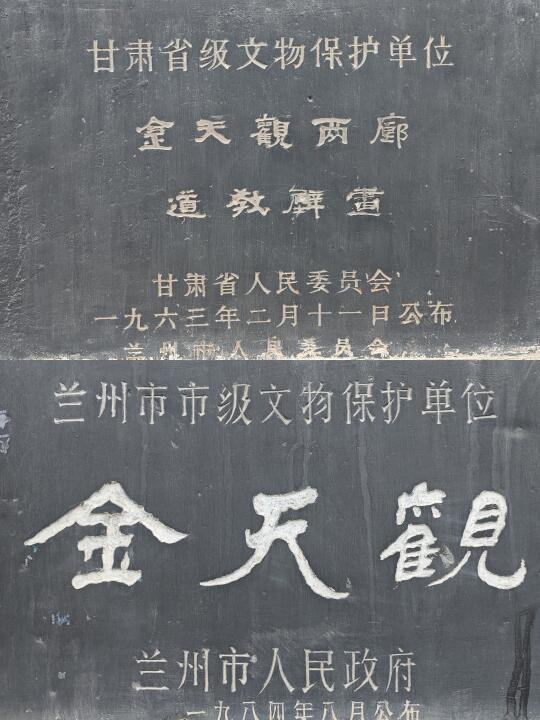 甘肃省级文物保护单位
金天觀两廊
道教壁畫
甘肃省人民委员会
一九六三年二月十一日公布
兰州市人民委员会
兰州市市级文物保护单位
金天觀
兰州市人民政府
一九八四年八月公布